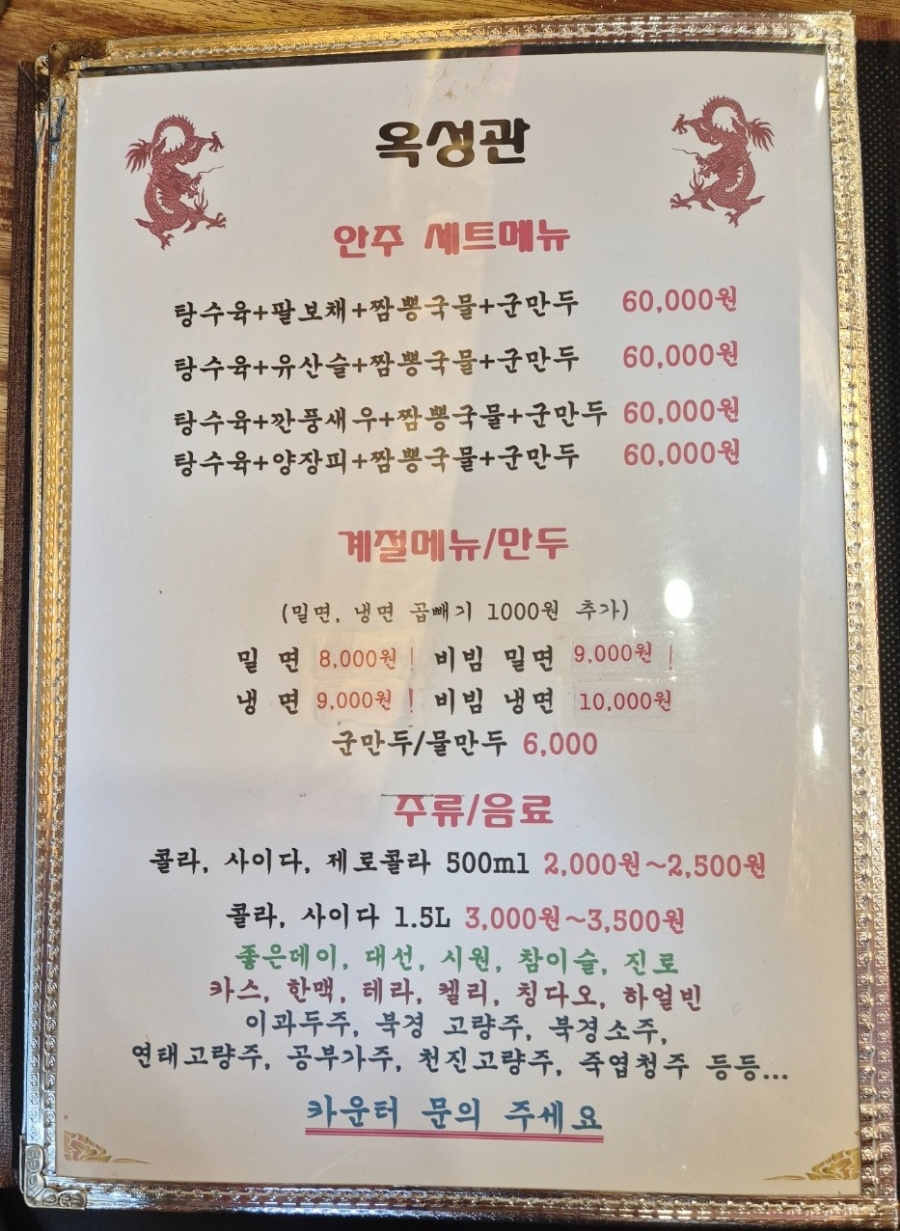 옥성관
안주 세트메뉴
탕수육+팔보채+짬뽕국물+군만두 60,000원
탕수육+유산슬+짬뽕국물+군만두 60,000원
탕수육+깐풍새우+짬뽕국물+군만두 60,000원
탕수육+양장피+짬뽕국물+군만두 60,000원
계절메뉴/만두
(밀면, 냉면 곱빼기 1000원 추가)
밀 면 8,000원 ! 비빔 밀면 9,000원 !
냉 면 9,000원 ! 비빔 냉면 10,000원
군만두/물만두 6,000
주류/음료
콜라, 사이다, 제로콜라 500ml 2,000원~2,500원
콜라, 사이다 1.5L 3,000원~3,500원
좋은데이, 대선, 시원, 참이슬, 진로
카스, 한맥, 테라, 켈리, 칭다오, 하얼빈
이과두주, 북경 고량주, 북경소주,
연태고량주, 공부가주, 천진고량주, 죽엽청주 등등...
카운터 문의 주세요